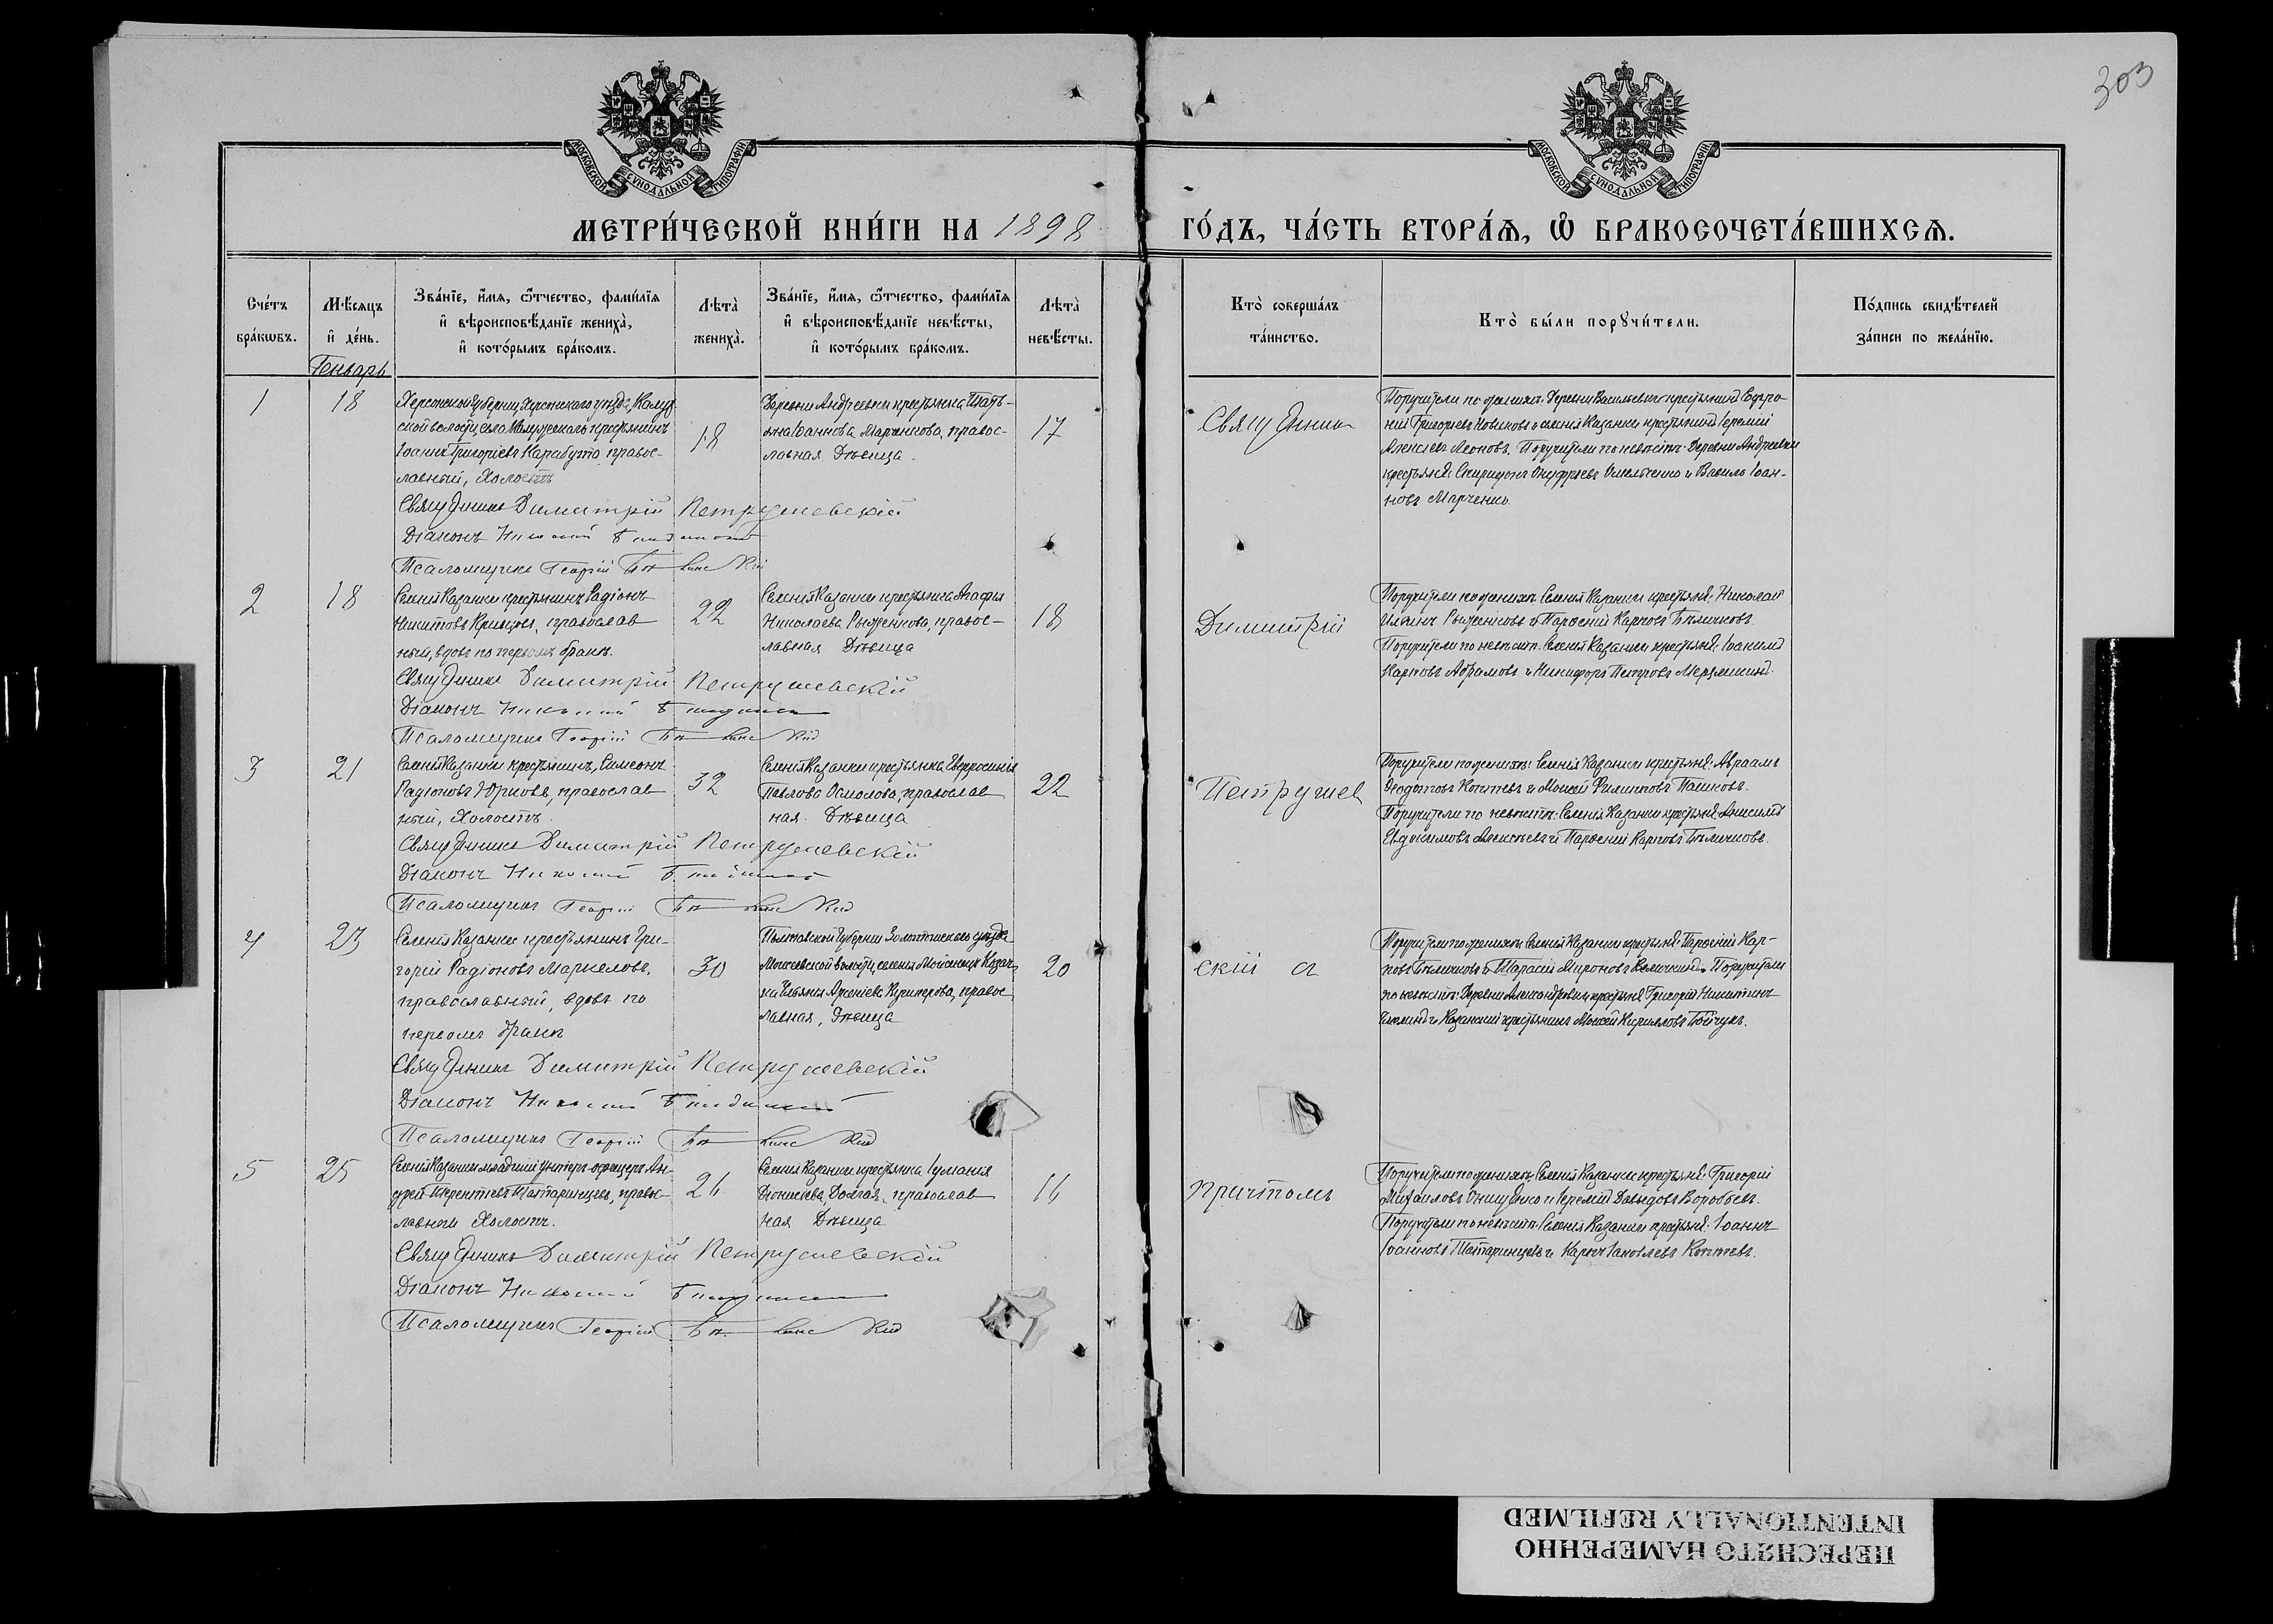 303
МОСКОВСКОЙ СУНОДАЛЬНОЙ ТИПОГРАФІИ
МОСКОВСКОЙ СУНОДАЛЬНОЙ ТИПОГРАФІИ
МЕТРИ́ЧЕСКОЙ КНИ́ГИ НА 1898 ГО́ДЪ, ЧА́СТЬ ВТОРА́Ѧ, Ѡ БРАКОСОЧЕТА́ВШИХСѦ.
Сче́тъ бра́кѡвъ.
Мѣ́сяцъ и҆ де́нь.
Зва́нїе, и҆́мя, ѻ҆́тчество, фами́лїя
и҆ вѣроисповѣ́данїе жениха̀,
и҆ кото́рымъ бра́комъ.
Лѣта̀ жениха̀.
Зва́нїе, и҆́мя, ѻ҆́тчество, фами́лїя
и҆ вѣроисповѣ́данїе невѣ́сты,
и҆ кото́рымъ бра́комъ.
Лѣта̀ невѣ́сты.
Кто̀ соверша́лъ та́инство.
Кто̀ бы́ли порꙋчи́тели.
По́дпись свидѣ́телей
за́писи по жела́нїю.
Генварь
1
18
Херсонской губерніи Херсонскаго уѣзда, Калуж
ской волости, села крестьянинъ
Іоаннъ Григоріевъ Карабута, правос-
лавный, Холостъ
18
Деревни Андреевки крестьянка Тать-
яна Іоаннова Марченкова, правос-
лавная Дѣвица.
17
Священникъ
Поручители по женихѣ: Деревни Васильевки крестьянинъ Софро-
ній Григорьевъ Новиковъ и селенія Казанки крестьянинъ Іеремій
Алексѣевъ Леоновъ. Поручители по невѣстѣ: Деревни Андреевки
крестьяне: Спиридонъ Онуфріевъ Омельченко и Вавило Іоан-
новъ Марченко.
Священникъ Димитрій Петрушевскій
Діаконъ Николай
Псаломщикъ Георгій
2
18
Селенія Казанки крестьянинъ Радіонъ
Никитовъ Кривцовъ, православ
ный, вдовъ по первомъ бракѣ.
22
Селенія Казанки крестьянка Агафія
Николаева Рыженкова, правос-
лавная Дѣвица
18
Димитрій
Поручители по женихѣ: Селенія Казанки крестьяне: Николай
Ильинъ Рыженковъ и Парѳеній Карповъ Бѣличковъ.
Поручители по невѣстѣ: Селенія Казанки крестьяне: Іоакимъ
Карповъ Абрамовъ и Никифоръ Петровъ Мерзликинъ.
Священникъ Димитрій Петрушевскій
Діаконъ Николай
Псаломщикъ Георгій
3
21
Селенія Казанки крестьянинъ, Симеонъ
Радіоновъ Юрковъ, православ
ный, Холостъ.
32
Селенія Казанки крестьянка Евфросинія
Павлова Осмолова, православ
ная. Дѣвица
22
Петрушев
Поручители по женихѣ: Селенія Казанки крестьяне: Авраамъ
Ѳедотовъ Коптевъ и Моисей Филипповъ Пашковъ.
Поручители по невѣстѣ: Селенія Казанки крестьяне: Анисимъ
Евдокимовъ Алексѣевъ и Парѳеній Карповъ Бѣличковъ.
Священникъ Димитрій Петрушевскій
Діаконъ Николай
Псаломщикъ Георгій
4
23
Селенія Казанки крестьянинъ Гри-
горій Радіоновъ Маркеловъ,
православный, вдовъ по
первомъ бракѣ
30
Полтавской губерніи Золотоношскаго уѣзда
Моисеевской волости, селенія Мойсенцы Казач
ка Ульяна Арсеніева правос
лавная, дѣвица
20
скій съ
Поручители по женихѣ: Селенія Казанки крестьяне: Парѳеній Кар-
повъ Бѣличковъ и Тарасій Мироновъ Величкинъ. Поручители
по невѣстѣ: Деревни Александровки крестьян. Григорій Никитинъ
и Казанскій крестьянинъ Моисей Кирилловъ Бойчукъ.
Священникъ Димитрій Петрушевскій
Діаконъ Николай
Псаломщикъ Георгій
5
25
Селенія Казанки младшій унтеръ-офицеръ Ан-
дрей Терентіевъ Татаринцевъ, правос-
лавный Холостъ.
26
Селенія Казанки крестьянка Іуліанія
Діонисіева Долгая, православ
ная Дѣвица
16
причтомъ
Поручители по женихѣ: Селенія Казанки крестьяне: Григорій
Михаиловъ Онищенко и Іеремій Давыдовъ Воробьевъ.
Поручители по невѣстѣ: Селенія Казанки крестьяне: Іоаннъ
Іоанновъ Татаринцевъ и Карпъ Іаковлевъ Коптевъ.
Священникъ Димитрій Петрушевскій
Діаконъ Николай
Псаломщикъ Георгій
ПЕРЕСНЯТО НАМЕРЕННО
INTENTIONALLY REFILMED